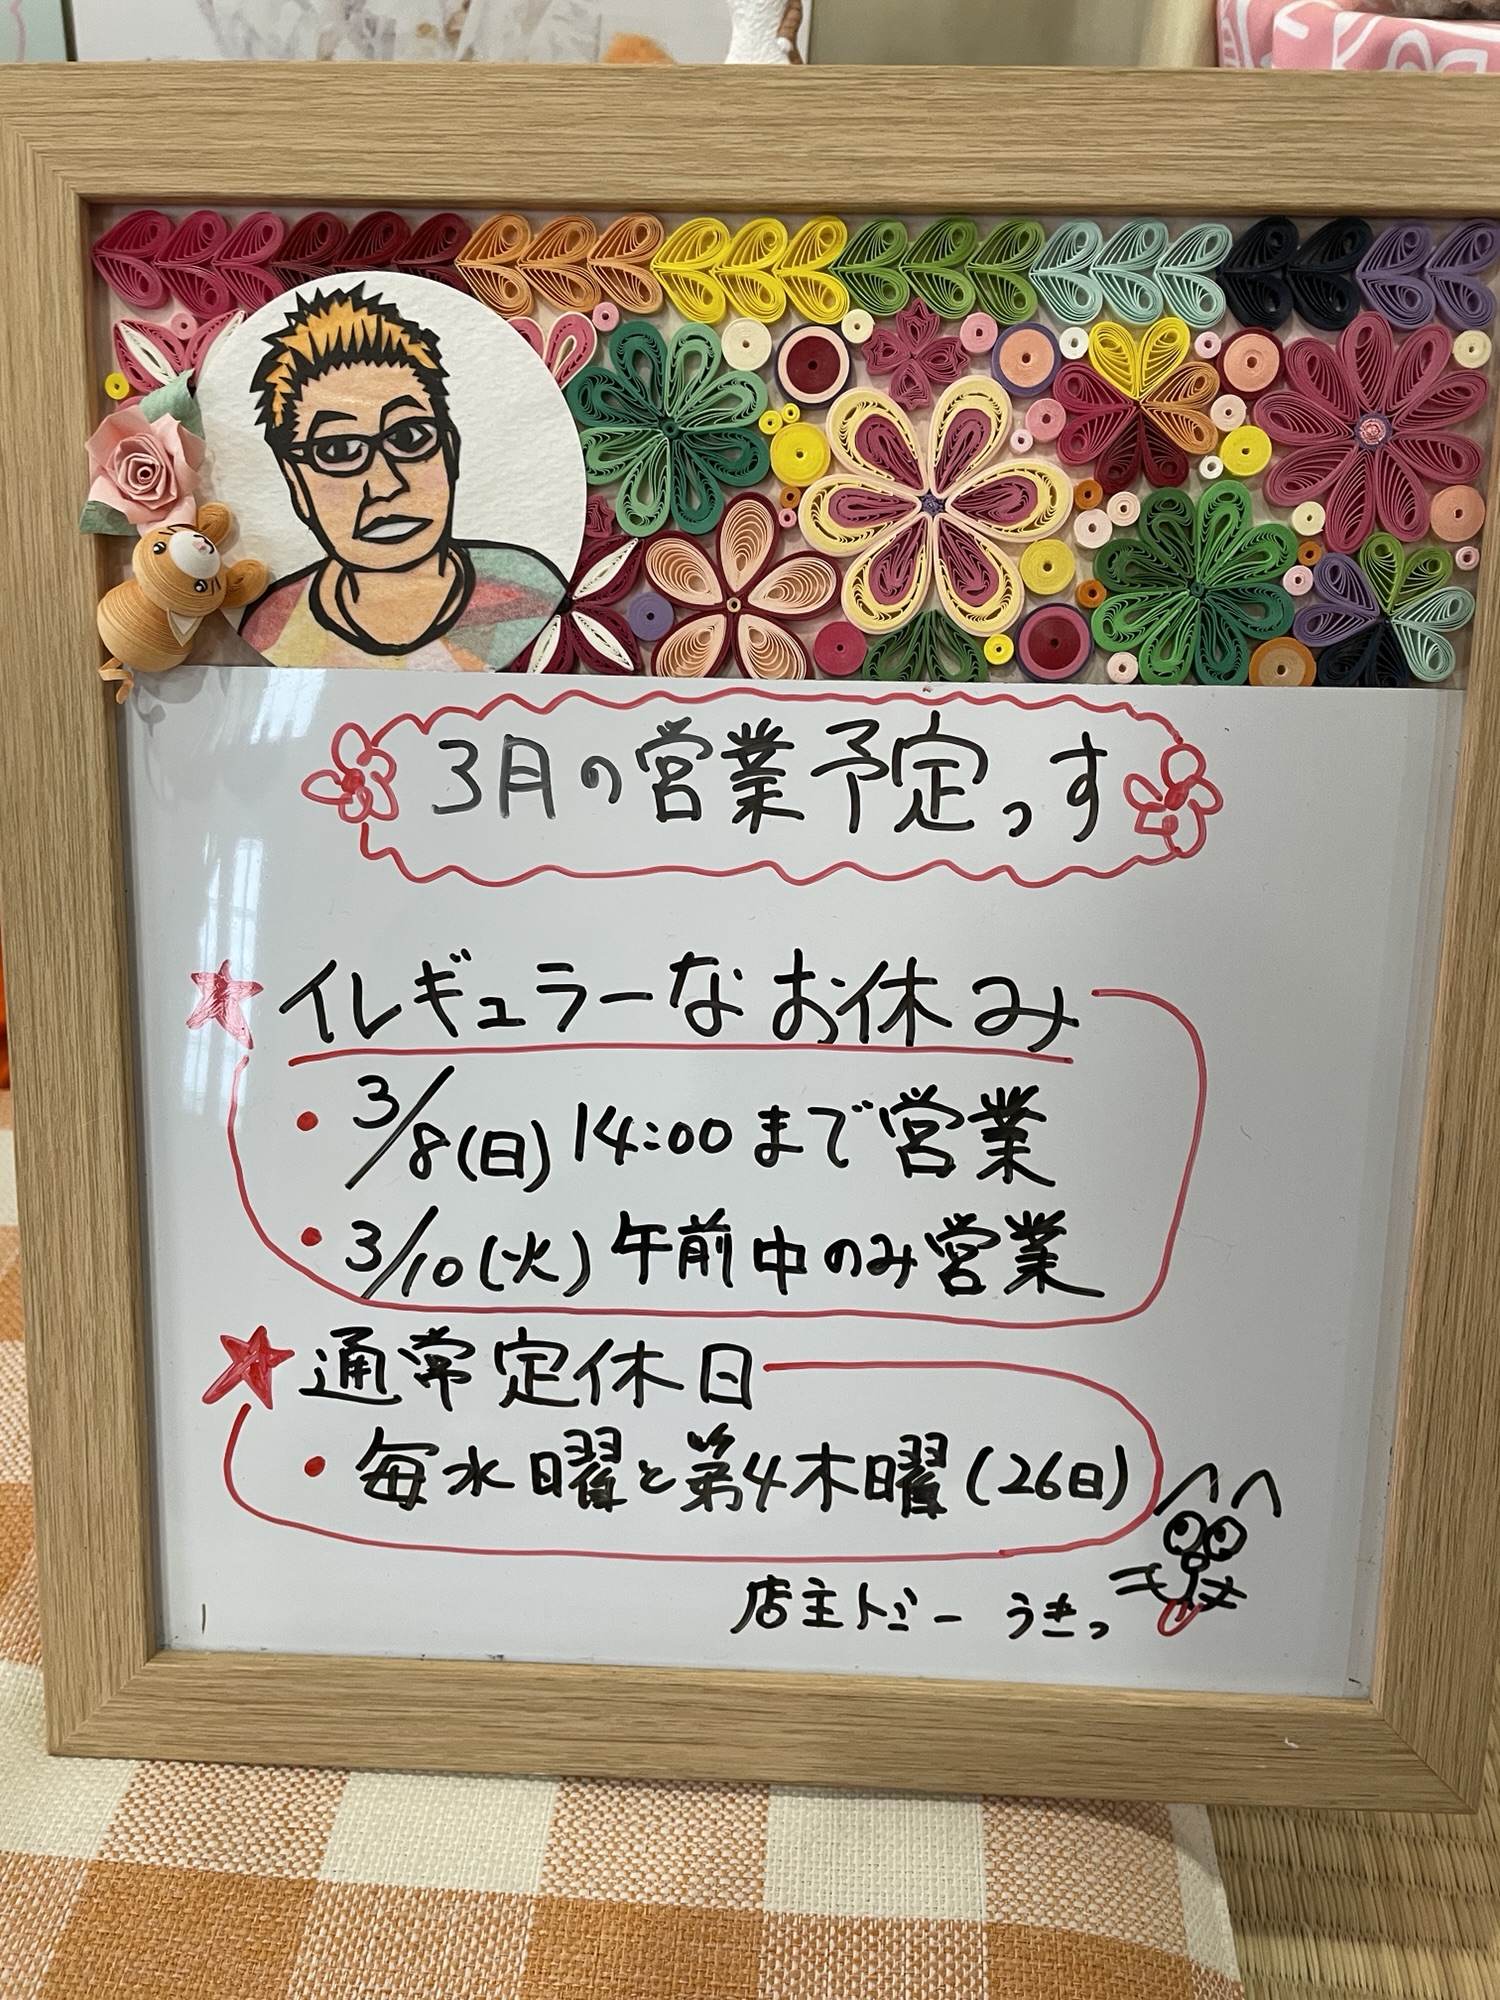 3月の営業予定っす
イレギュラーなお休み
・3/8(日) 14:00まで営業
・3/10(火) 午前中のみ営業
通常定休日
・毎水曜と第4木曜(26日)
店主トミー うきっ